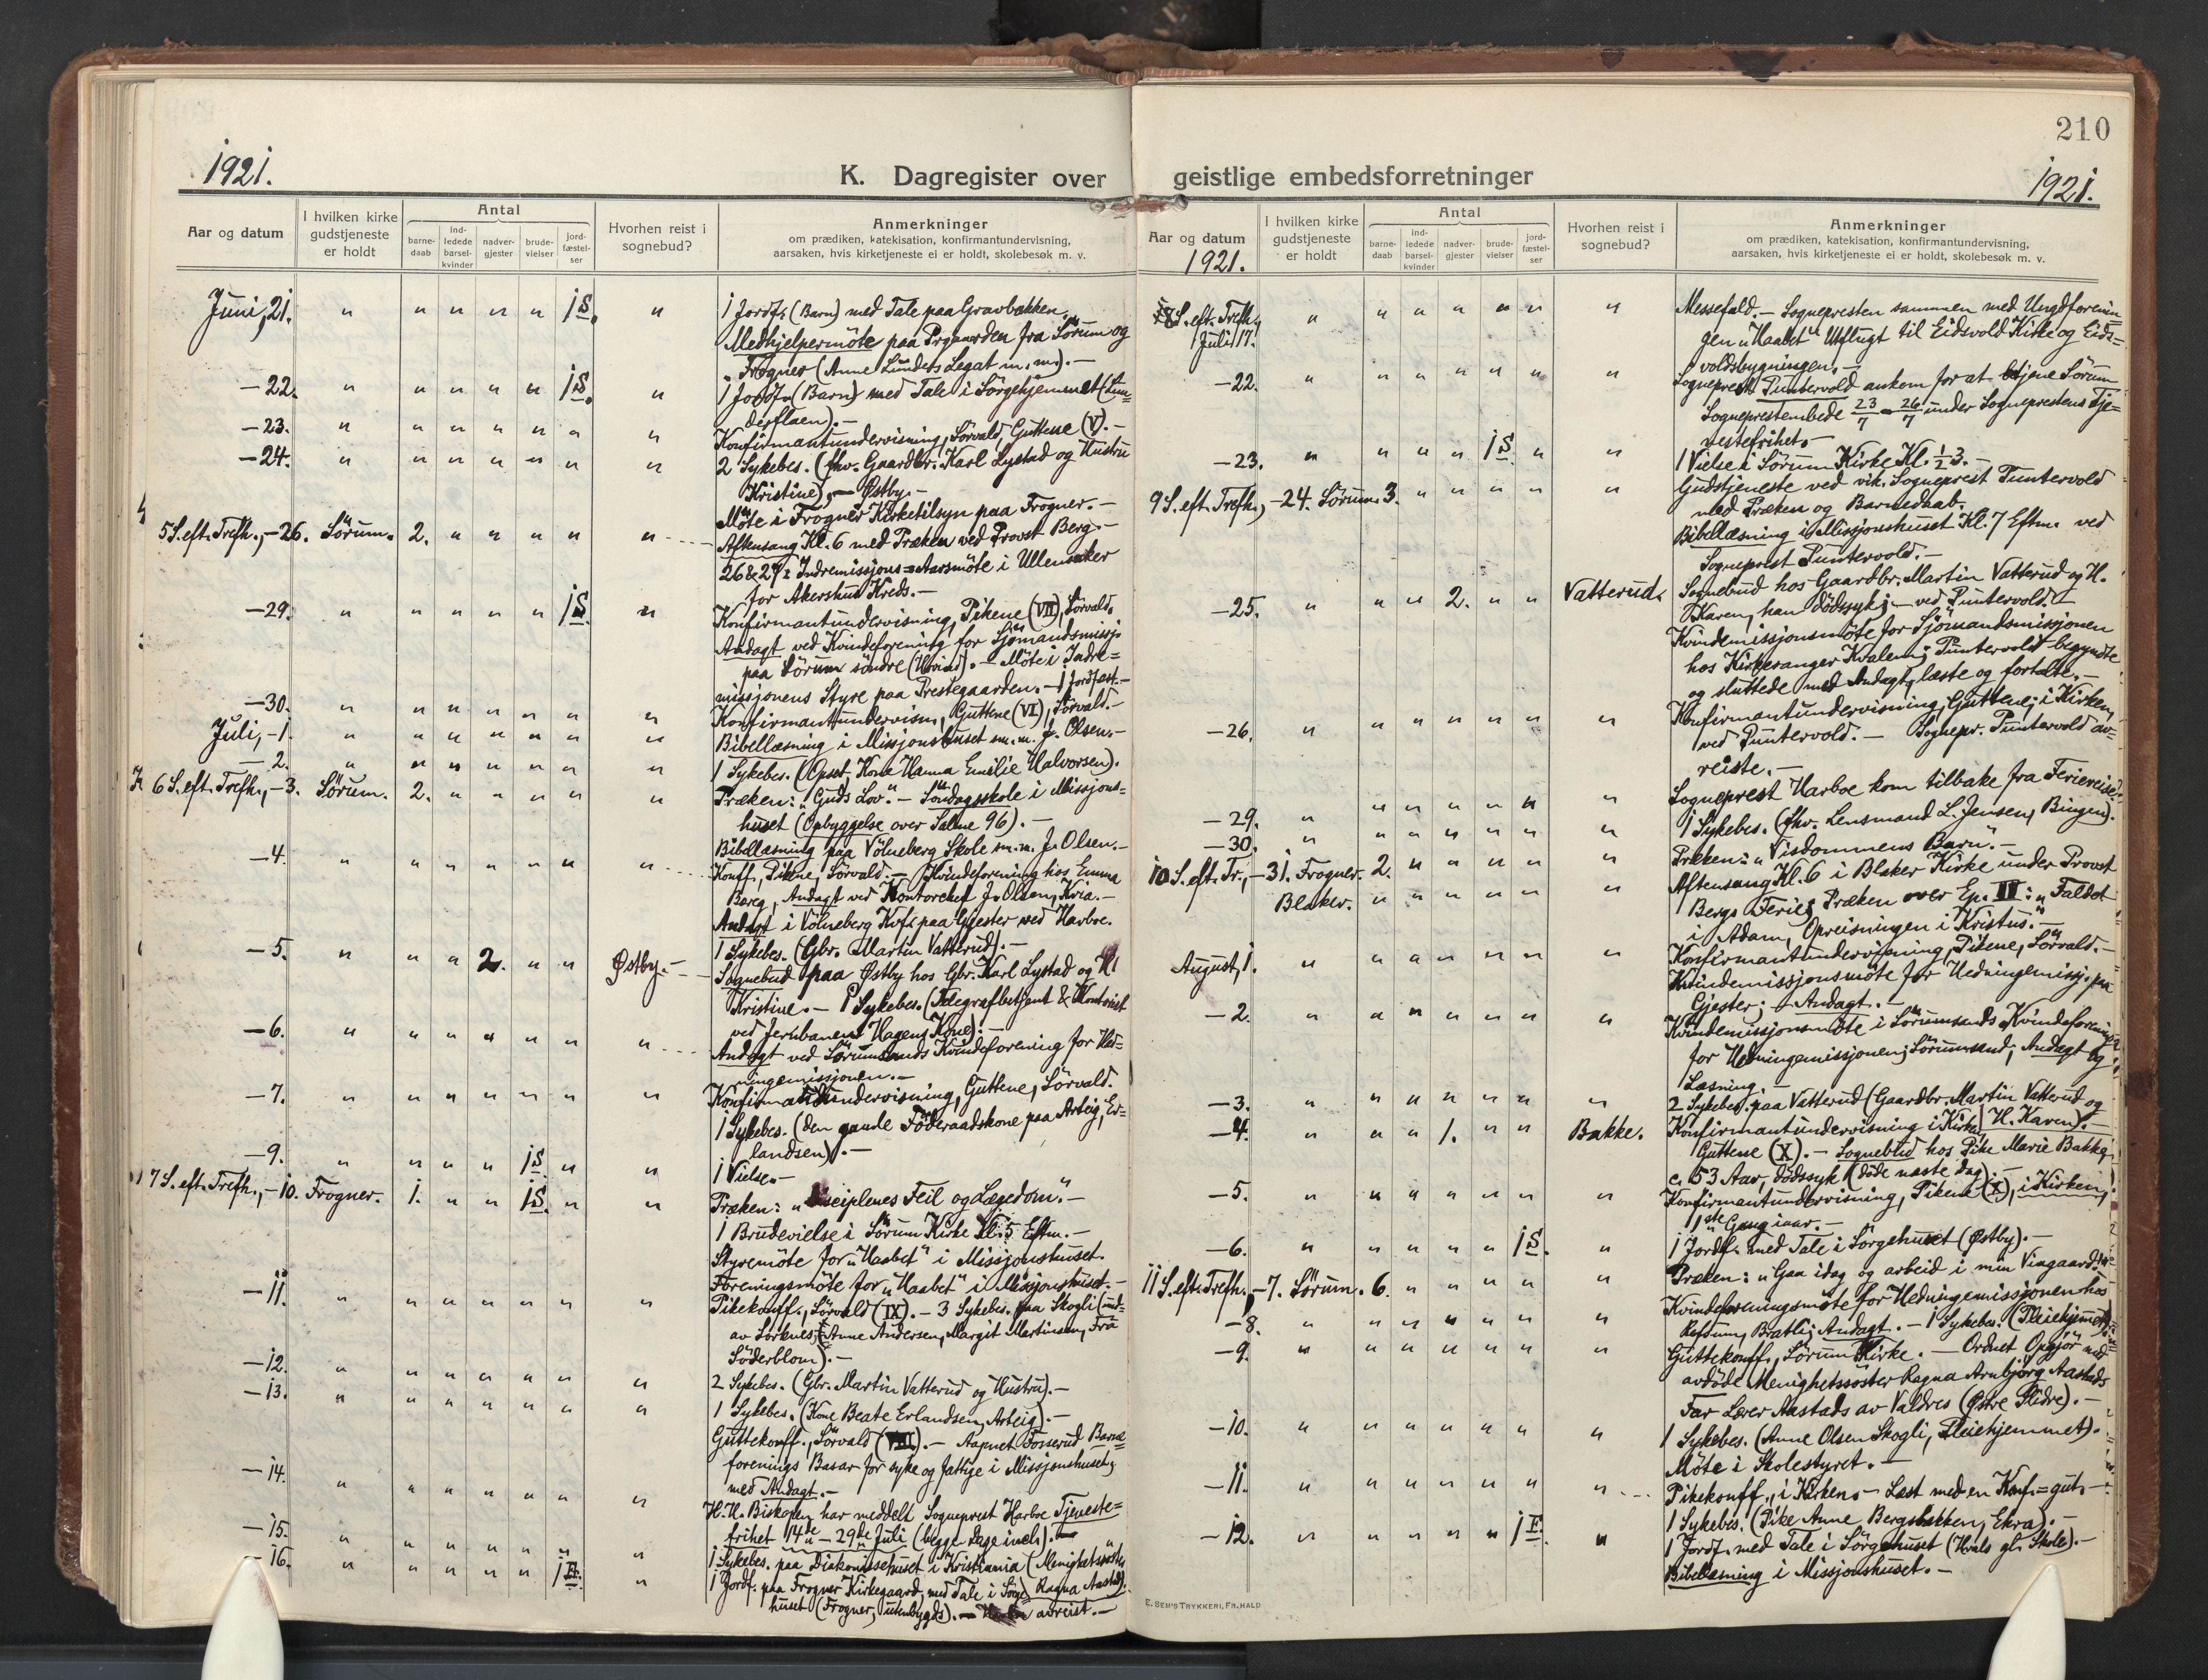 1921.
K. Dagregister over
Aar og datum
I hvilken kirke gudstjeneste er holdt
Antal
barne-daab
ind-ledede barsel-kvinder
nadver-gjester
brude-vielser
jord-fæstel-ser
Hvorhen reist i sognebud?
Anmerkninger
om prædiken, katekisation, konfirmantundervisning,
aarsaken, hvis kirketjeneste ei er holdt, skolebesøk m. v.
Juni, 21. " " " " " 1 S. " 1 Jordf. (Barn) med Tale paa Gravbakken.
Medhjelpermöte paa Prgaarden fra Sörum og
Frogner (Anne Lunders Legat m. m.).—
—22. " " " " " 1 S. " 1 Jordf. (Barn) med Tale i Sörgehjemmet (Lun=
derflaen).—
—23. " " " " " " " Konfirmantundervisning, Sörvald, Guttene (V).—
—24. " " " " " " " 2 Sykebes. (fhv. Gaardbr. Karl Lystad og Hustru
Kristine).— Østby.—
Möte i Frogner Kirketilsyn paa Frogner.—
5 S. eft. Trefh., —26. Sörum. 2. " " " " " Aftensang Kl. 6 med Præken ved Provst Berg.—
26 & 27: Indremissjons=Aarsmöte i Ullensaker
for Akershus Kreds.—
—29. " " " " " 1 S. " Konfirmantundervisning, Pikene (VII), Sörvald.
Andagt ved Kvindeforening for Sjömandsmissj.
paa Sörum söndre (Hvind).— Möte i Indre=
missjonens Styre paa Prestegaarden.— 1 Jordfæst.—
—30. " " " " " " " Konfirmantundervisn., Guttene (VI), Sörvald.—
Juli, —1. " " " " " " " Bibellæsning i Missjonshuset m. m. J. Olsen.—
—2. " " " " " " " 1 Sykebes. (Opset, Kone Hanna Emilie Halvorsen).
6 S. eft. Trefh., —3. Sörum. 2. " " " " " Præken: "Guds Lov."— Söndagsskole i Missjons=
huset (Opbyggelse over Salme 96).—
Bibellæsning paa Völneberg Skole m. m. J. Olsen.—
—4. " " " " " " " Konff., Pikene, Sörvald.— Kvindeforening hos Emma
Berg, Andagt ved Kontorchef J. Olsen, Kria.—
Andagt i Völneberg Kvf. paa Gjester ved Harboe.
1 Sykebes. (Gbr. Martin Vatterud).—
—5. " " " 2. " " Østby.— Sognebud paa Østby hos Gbr. Karl Lystad og H.
Kristine.— 1 Sykebes. (Telegrafbetjent & Kontorist
ved Jernbanen Hagens Kone).—
—6. " " " " " " " Andagt ved Sörumsands Kvindeforening for Hed=
ningemissjonen.—
—7. " " " " " " " Konfirmantundervisning, Guttene, Sörvald.
1 Sykebes. (den gamle Föderaadskone paa Arteig, Er=
landsen).—
—9. " " " " 1 S. " " 1 Vielse.—
7 S. eft. Trefh., —10. Frogner. 1. " " 1 S. " " Præken: "Disciplenes Feil og Lægedom."—
1 Brudevielse i Sörum Kirke Kl. 5 Eftm.—
Styremöte for "Haabet" i Missjonshuset.
Foreningsmöte for "Haabet" i Missjonshuset.—
—11. " " " " " " " Pikekonff., Sörvald (IX).— 3 Sykebes. paa Skogli (ind=
av Sörknes, (Anne Andersen, Margit Martinsen, Fru
Söderblom).—
—12. " " " " " " " 2 Sykebes. (Gbr. Martin Vatterud og Hustru).—
—13. " " " " " " " 1 Sykebes. (Kone Beate Erlandsen, Arteig).—
Guttekonff., Sörvald (VIII).— Aapnet Fosserud Barne=
forenings Basar for syke og fattige i Missjonshuset,
med Andagt.—
—14. " " " " " " " H. H. Biskopen har meddelt Sogneprest Harboe Tjeneste=
frihet 14de — 29de Juli (begge Dage incl.).—
—15. " " " " " " " 1 Sykebes. paa Diakonissehuset i Kristiania (Menighetssöster
Ragna Aastad).
—16. " " " " " 1 F. " 1 Jordf. paa Frogner Kirkegaard med Tale i Sörge=
huset (Frogner, utenbygds).— avreist.—
210
1921.
geistlige embedsforretninger
Aar og datum
1921.
I hvilken kirke gudstjeneste er holdt
Antal
barne-daab
ind-ledede barsel-kvinder
nadver-gjester
brude-vielser
jord-fæstel-ser
Hvorhen reist i sognebud?
Anmerkninger
om prædiken, katekisation, konfirmantundervisning,
aarsaken, hvis kirketjeneste ei er holdt, skolebesøk m. v.
8 S. eft. Trefh., Juli 17. " " " " " " " Messefald.— Sognepresten sammen med Ungdforenin
gen "Haabet" Utflugt til Eidsvold Kirke og Eids=
voldsbygningen.—
—22. " " " " " " " Sogneprest Puntervold ankom for at betjene Sörum
Sogneprestembede 23/7 – 26/7 under Sogneprestens Tje=
nestefrihet.—
—23. " " " " 1 S. " " 1 Vielse i Sörum Kirke Kl. ½3.—
9 S. eft. Trefh., —24. Sörum. 3. " " " " " Gudstjeneste ved vik. Sogneprest Puntervold
med Præken og Barnedaab.
Bibellæsning i Missjonshuset Kl. 7 Eftm. ved
Sogneprest Puntervold.—
—25. " " " 2. " " Vatterud. Sognebud hos Gaardbr. Martin Vatterud og H.
Karen, han dödssyk;— ved Puntervold.—
Kvindemissjonsmöte for Sjömandsmissjonen
hos Kirkesanger Kvalem; Puntervold begyndte
og sluttede med Andagt, læste og fortalte.—
—26. " " " " " " " Konfirmantundervisning, Guttene, i Kirken,
ved Puntervold.— Sognepr. Puntervold av=
reiste.—
—29. " " " " " " " Sogneprest Harboe kom tilbake fra Feriereise.
—30. " " " " " " " 1 Sykebes. (fhv. Lensmand L. Jensen, Bingen).
10 S. eft. Tr., —31. Frogner. 2. " " " " " Præken: "Visdommens Barn."—
Blaker. " " " " " " Aftensang Kl. 6 i Blaker Kirke under Provst
Bergs Ferie; Præken over Ep. II: "Faldet
i Adam, Opreisningen i Kristus."—
August, 1. " " " " " " " Konfirmantundervisning, Pikene, Sörvald.—
Kvindemissjonsmöte for Hedningemissj. paa
Gjester; Andagt.—
—2. " " " " " " " Kvindemissjonsmöte i Sörumsands Kvindeforening
for Hedningemissjonen, Sörumsand; Andagt og
Læsning.—
—3. " " " " " " " 2 Sykebes. paa Vatterud (Gaardbr. Martin Vatterud og
H. Karen).—
—4. " " " 1. " " Bakke. Konfirmantundervisning i Kirken,
Guttene (X).— Sognebud hos Pike Marie Bakke,
c. 53 Aar, dödssyk (döde næste dag).—
—5. " " " " " " " Konfirmantundervisning, Pikene (X), i Kirken,
1ste Gang iaar.—
—6. " " " " " 1 S. " 1 Jordf. med Tale i Sörgehuset (Østby).—
11 S. eft. Trefh., —7. Sörum. 6. " " " " " Præken: "Gaa idag og arbeid i min Vingaard!"
—8. " " " " " " " Kvindeforeningsmöte for Hedningemissjonen hos
Refsum, Bratli; Andagt.— 1 Sykebes. (Pleiehjemmet).
—9. " " " " " " " Guttekonff., Sörum Kirke.— Ordnet Opgjör med
avdöde Menighetssöster Ragna Arnbjörg Aastads
Far Lærer Aastads av Valdres (Østre Slidre).—
—10. " " " " " " " 1 Sykebes. (Anne Olsen Skogli, Pleiehjemmet).
Möte i Skolestyret.—
—11. " " " " " " " Pikekonff., i Kirken.— Læst med en Konf.=gut.—
1 Sykebes. (Pike Anne Bergsbakken, Ekra).—
—12. " " " " " 1 F. " 1 Jordf. med Tale i Sörgehuset (Hvals gl. Skole).—
Bibellæsning i Missjonshuset.—
E. SEM'S TRYKKERI, FR.HALD